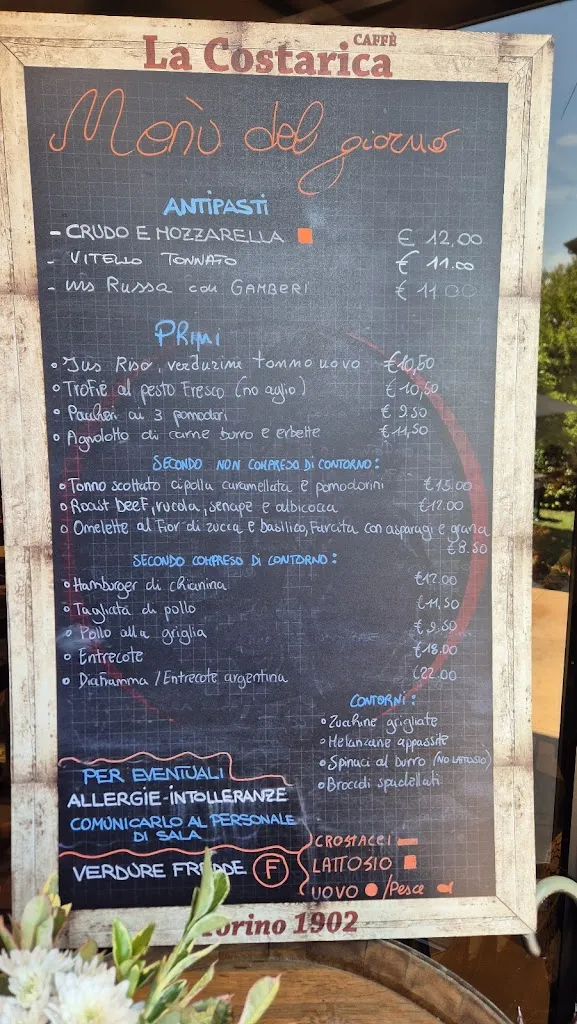 La Costarica CAFFÈ
Menù del giorno
ANTIPASTI
- CRUDO E MOZZARELLA € 12,00
- VITELLO TONNATO € 11.00
- INS RUSSA CON GAMBERI € 11.00
PRIMI
Ins Riso, verdurine tonno uovo €10,50
TROFIE al pesto Fresco (no aglio) €10,50
Paccheri ai 3 pomodori € 9.50
Agnolotto di carne burro e erbette € 11,50
SECONDO NON COMPRESO DI CONTORNO:
Tonno scottato cipolla caramellata e pomodorini €15.00
Roast beef, rucola, senape e albicocca €12.00
Omelette al Fior di zucca e basilico, Farcita con asparagi e grana
€8.50
SECONDO COMPRESO DI CONTORNO:
Hamburger di chianina €12.00
Tagliata di pollo €11,50
Pollo alla griglia €9.50
Entrecote €18.00
Diaframma / Entrecote argentina €22.00
CONTORNI:
Zucchine grigliate
Melanzane appassite
Spinaci al burro (NO LATTOSIO)
Broccoli spadellati
PER EVENTUALI
ALLERGIE-INTOLLERANZE
COMUNICARLO AL PERSONALE
DI SALA
VERDURE FREDDE F
CROSTACEI
LATTOSIO
UOVO /Pesce
Torino 1902